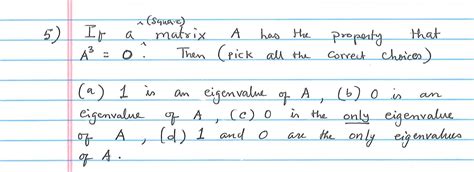 ^(Square)
5) If a matrix A has the property that
A³ = 0. Then (pick all the correct choices)
(a) 1 is an eigenvalue of A, (b) 0 is an
eigenvalue of A, (c) 0 is the only eigenvalue
of A, (d) 1 and 0 are the only eigenvalues
of A.